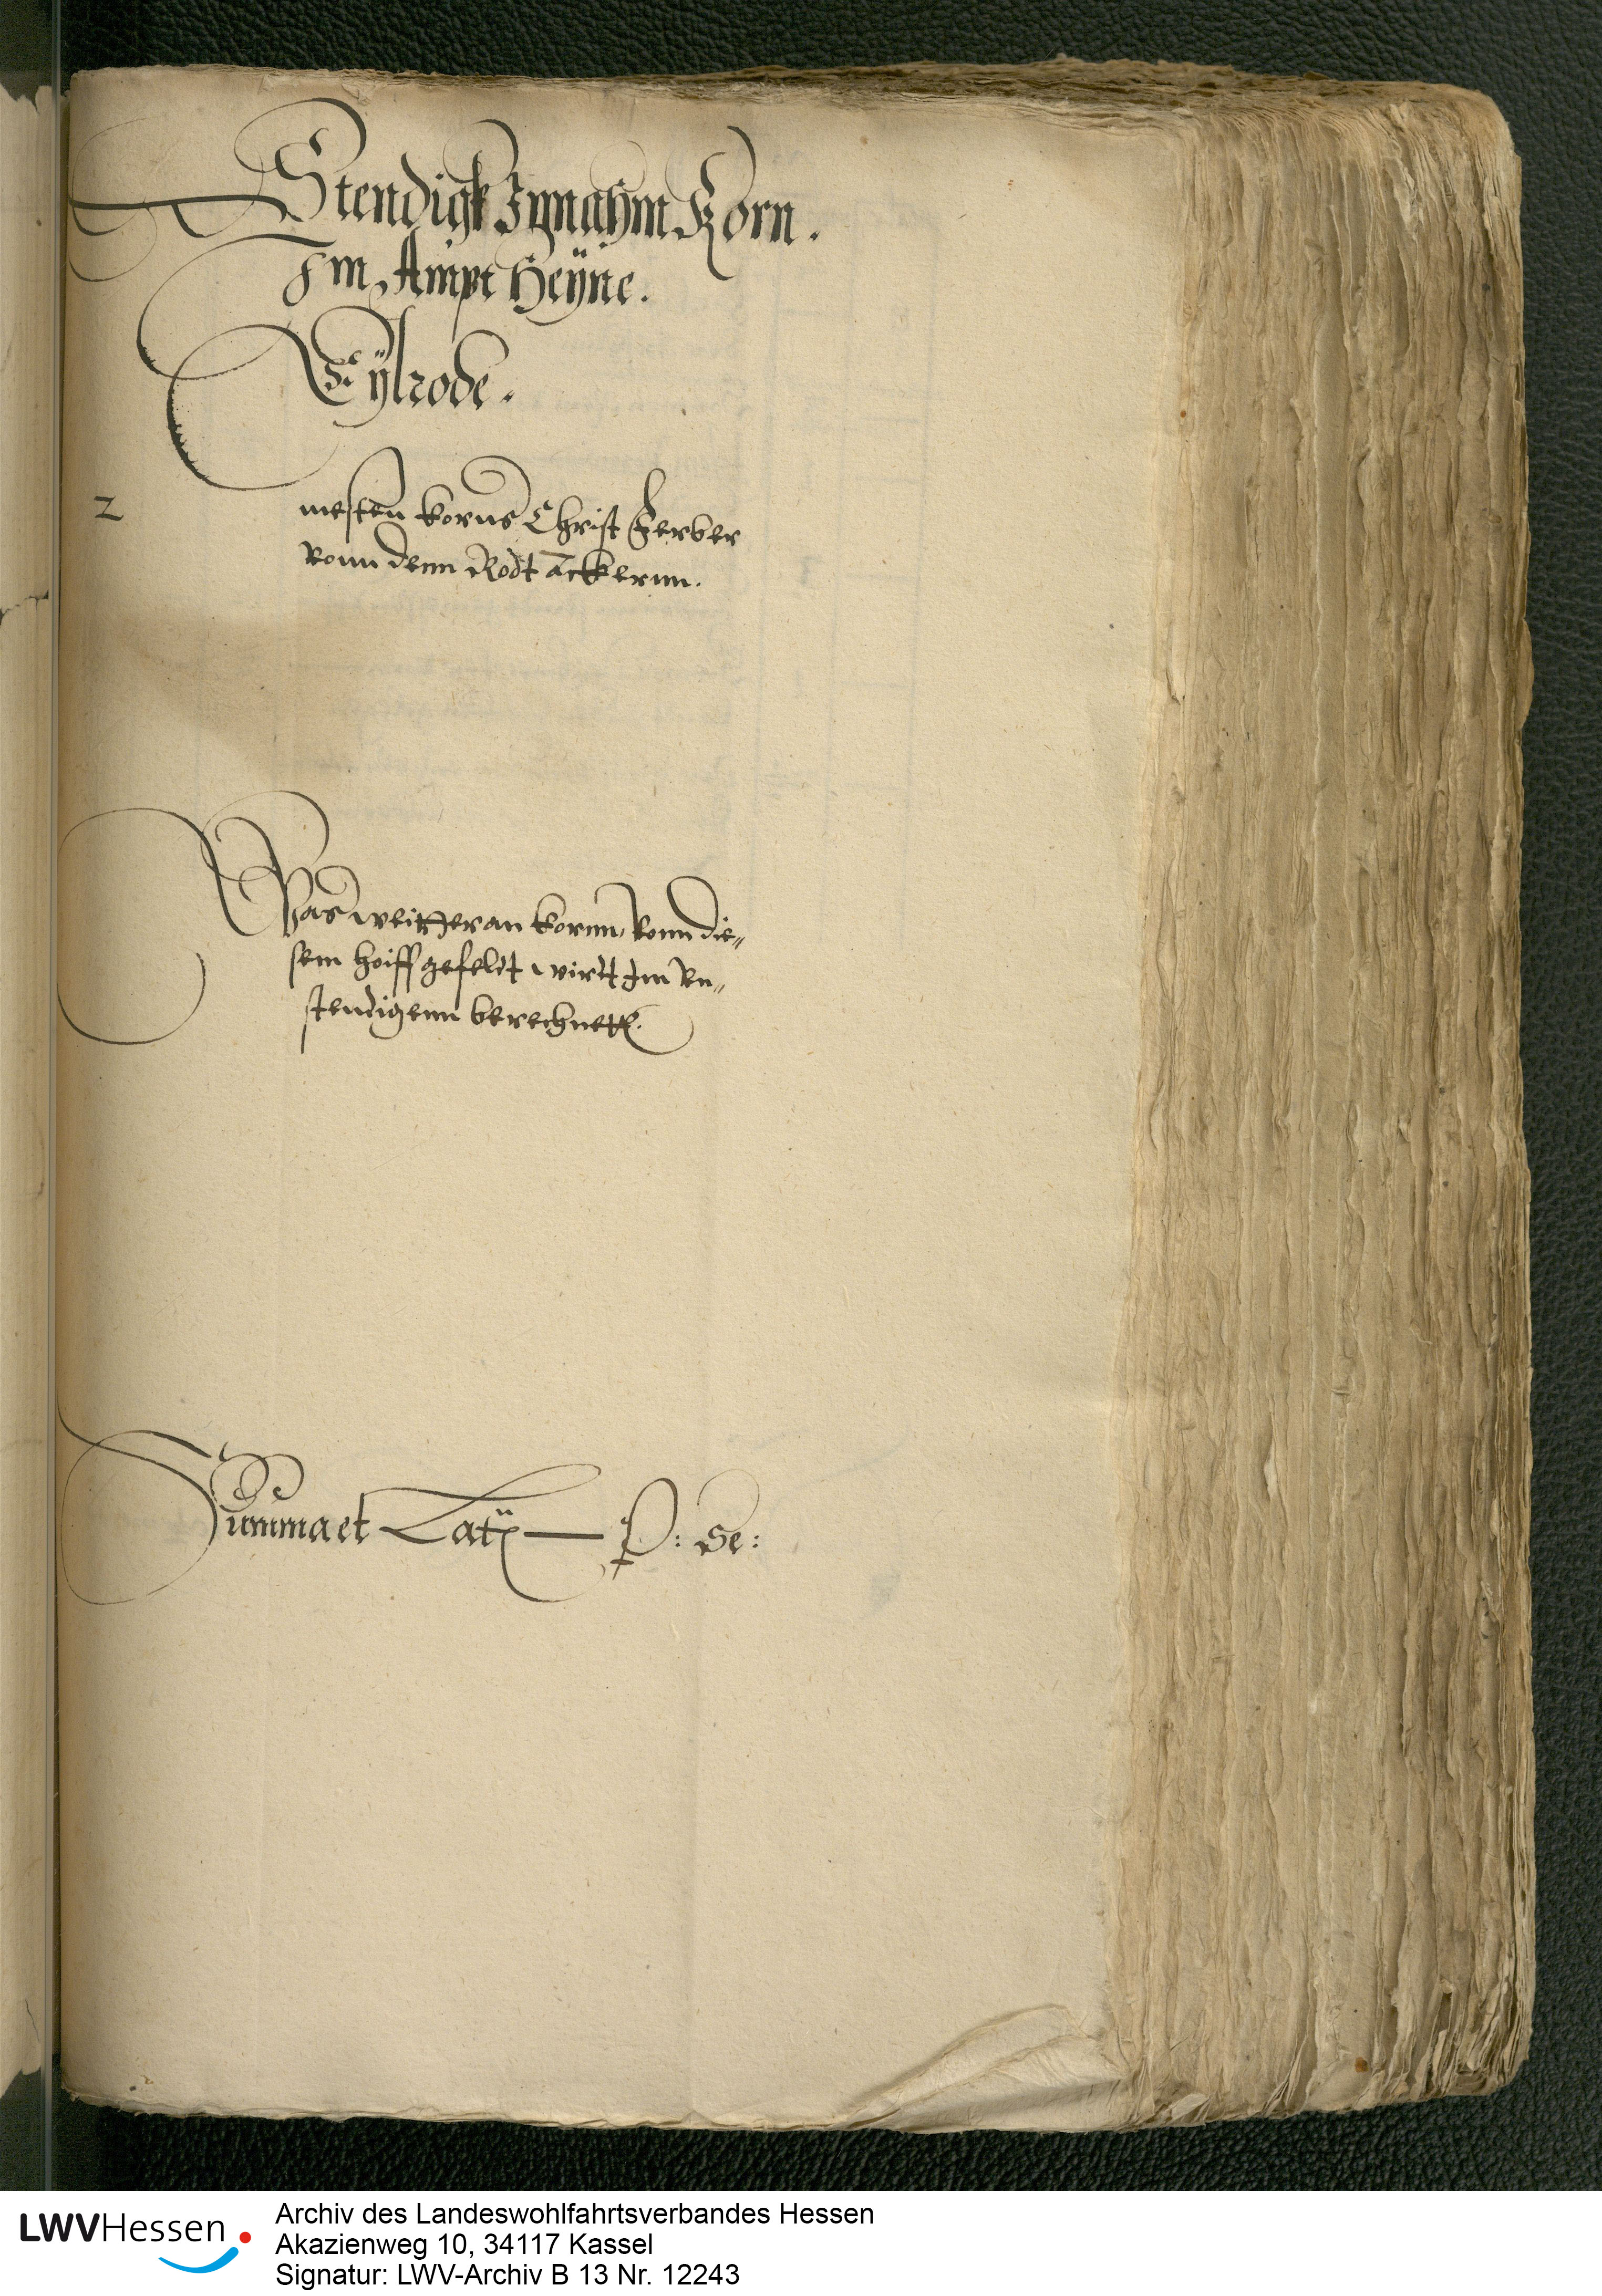 Stendigk Jnnahm Korn.
Jm Ampt Heÿne.
Eÿlrode.
2 mesten korns Christ Ferber
vonn denn Rodt Äckernn.
Was weitter an kornn, vonn die„
sem hoiff gefeldt wirdt Jm vn„
stendigenn berechnett.
Summa et Latÿ — P: Se:
LWVHessen
Archiv des Landeswohlfahrtsverbandes Hessen
Akazienweg 10, 34117 Kassel
Signatur: LWV-Archiv B 13 Nr. 12243